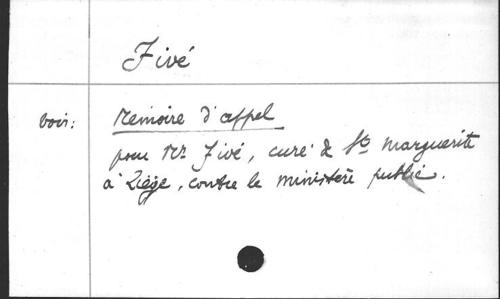 Fivé
voir: Mémoire d'appel
pour Mr Fivé, curé de Ste Marguerite
à Liège, contre le ministère public.